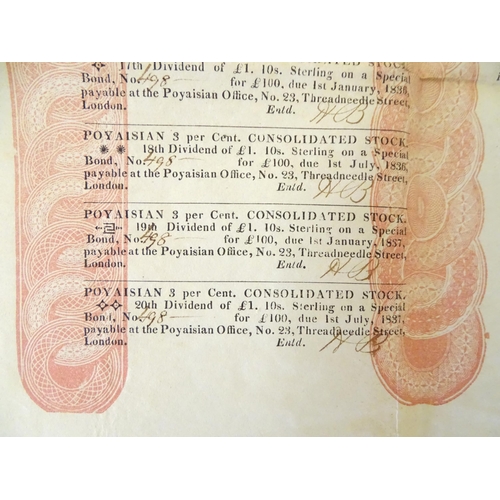 17th Dividend of £1. 10s. Sterling on a Special
Bond, No. 498 for £100, due 1st January, 1836,
payable at the Poyaisian Office, No. 23, Threadneedle Street,
London. Entd. HB
POYAISIAN 3 per Cent. CONSOLIDATED STOCK.
18th Dividend of £1. 10s. Sterling on a Special
Bond, No. 498 for £100, due 1st July, 1836,
payable at the Poyaisian Office, No. 23, Threadneedle Street,
London. Entd. HB
POYAISIAN 3 per Cent. CONSOLIDATED STOCK.
19th Dividend of £1. 10s. Sterling on a Special
Bond, No. 498 for £100, due 1st January, 1837,
payable at the Poyaisian Office, No. 23, Threadneedle Street,
London. Entd. HB
POYAISIAN 3 per Cent. CONSOLIDATED STOCK.
20th Dividend of £1. 10s. Sterling on a Special
Bond, No. 498 for £100, due 1st July, 1837,
payable at the Poyaisian Office, No. 23, Threadneedle Street,
London. Entd. HB